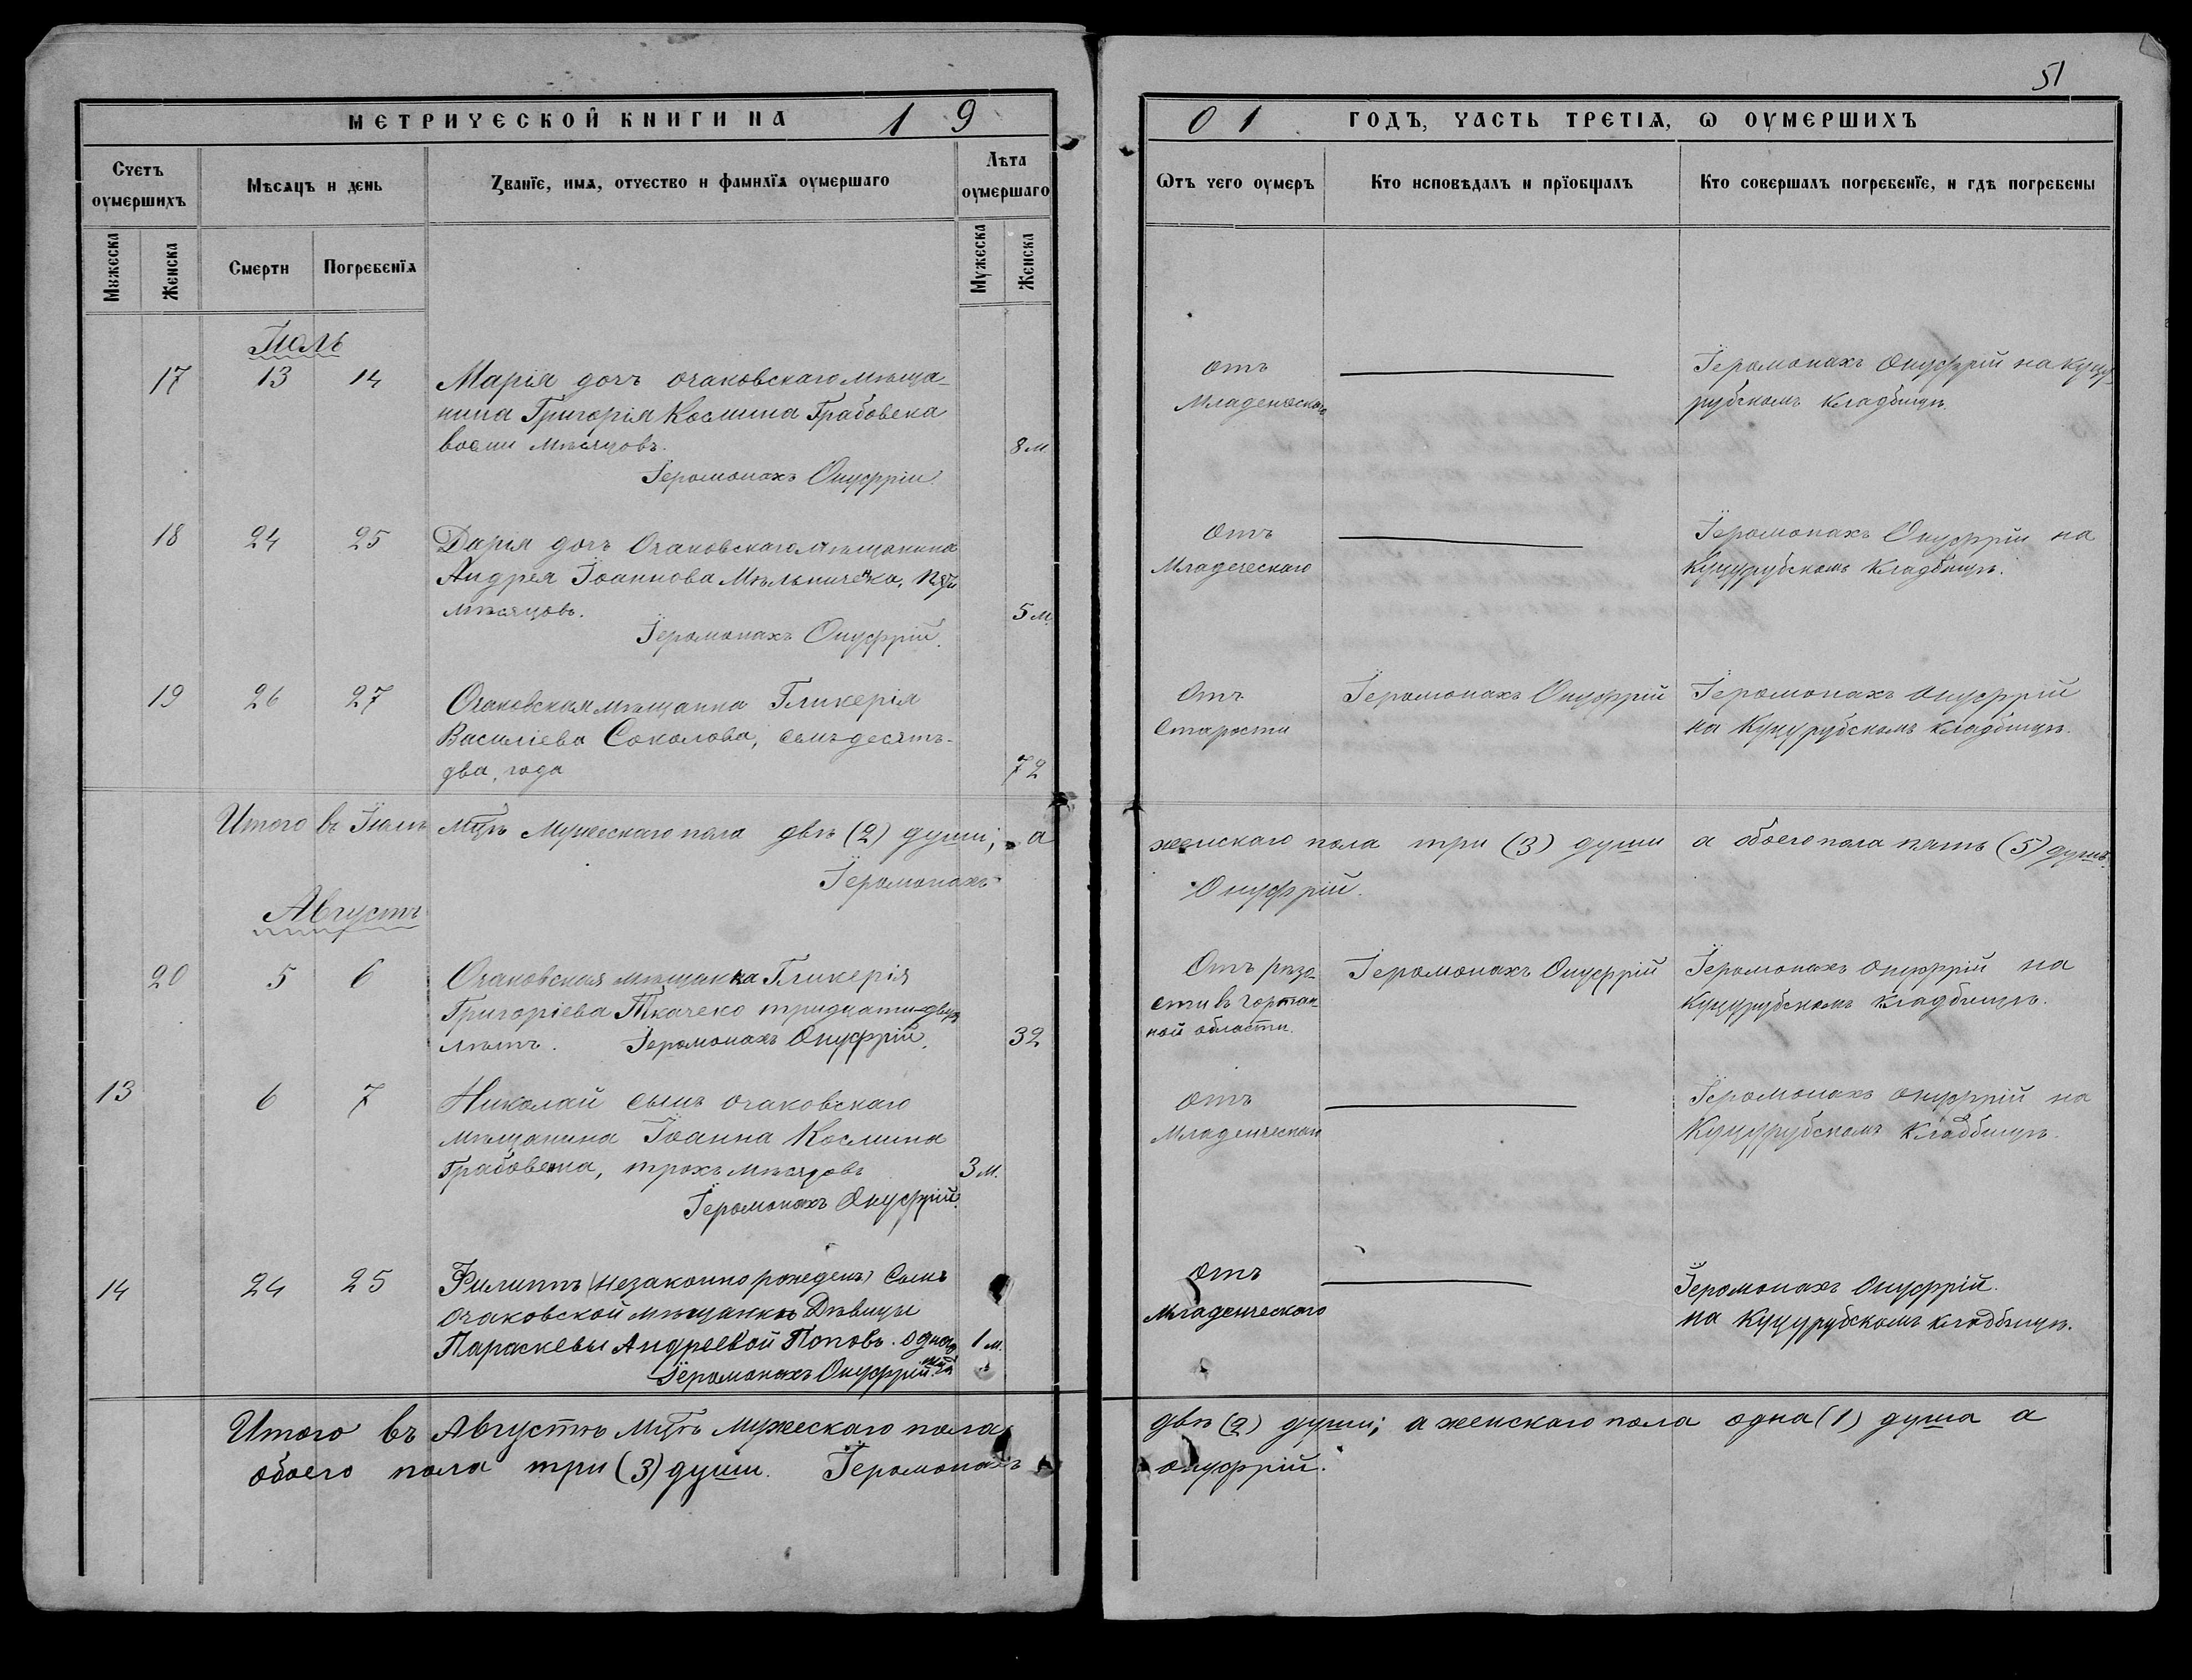 51
МЕТРИЧЕСКОЙ КНИГИ НА 19
01 ГОДЪ, ЧАСТЬ ТРЕТІѦ, Ѡ ОУМЕРШИХЪ
Счетъ оумершихъ
Мѣсѧцъ и день
Ѕванїе, имѧ, отчество и фамилїѧ оумершаго
Лѣта оумершаго
Ѿтъ чего оумеръ
Кто исповѣдалъ и прїобщалъ
Кто совершалъ погребенїе, и гдѣ погребены
Мꙋжеска
Женска
Смерти
Погребенїѧ
Мужеска
Женска
Іюль
17 13 14 Марія дочь очаковскаго мѣща-
нина Григорія Космина Грабовека
восми мѣсяцовъ. 8 м
Іеромонахъ Онуфрій.
отъ
Младенческаго
Іеромонахъ Онуфрій на Куцу-
рубскомъ кладбищѣ.
18 24 25 Дарія дочь Очаковскаго мѣщанина
Андрея Іоаннова Мѣльниченко, пяти
мѣсяцовъ. 5 м.
Іеромонахъ Онуфрій.
Отъ
Младеческаго
Іеромонахъ Онуфрій на
Куцурубскомъ кладбищѣ.
19 26 27 Очаковская мѣщанка Гликерія
Василіева Соколова, семьдесятъ-
два, года 72
Отъ
Старости
Іеромонахъ Онуфрій
Іеромонахъ Онуфрій
на Куцурубскомъ кладбищѣ.
Итого въ Іюлѣ мцѣ Мужескаго пола двѣ (2) души; а
женскаго пола три (3) души а обоего пола пять (5) душъ.
Іеромонахъ
Онуфрій.
Августъ
20 5 6 Очаковская мѣщанка Гликерія
Григоріева Ткачеко тридцати-двухъ
лѣтъ. Іеромонахъ Онуфрій. 32
Отъ рѣзо-
сти въ гортан-
ной области.
Іеромонахъ Онуфрій
Іеромонахъ Онуфрій на
Куцурубскомъ кладбищѣ.
13 6 7 Николай сынъ очаковскаго
мѣщанина Іоанна Космина
Грабовека, трохъ мѣсяцовъ 3 м.
Іеромонахъ Онуфрій.
отъ
Младенческаго
Іеромонахъ Онуфрій на
Куцурубскомъ кладбищѣ.
14 24 25 Филиппъ (незаконно рожденъ) сынъ
очаковской мѣщанки Дѣвицы
Параскевы Андреевой Поповъ. одного 1 м.
мца
Іеромонахъ Онуфрій.
отъ
Младенческаго
Іеромонахъ Онуфрій.
на Куцурубскомъ кладбищѣ.
Итого въ Августѣ мцѣ мужескаго пола
двѣ (2) души; а женскаго пола одна (1) душа а
обоего пола три (3) души. Іеромонахъ
Онуфрій.